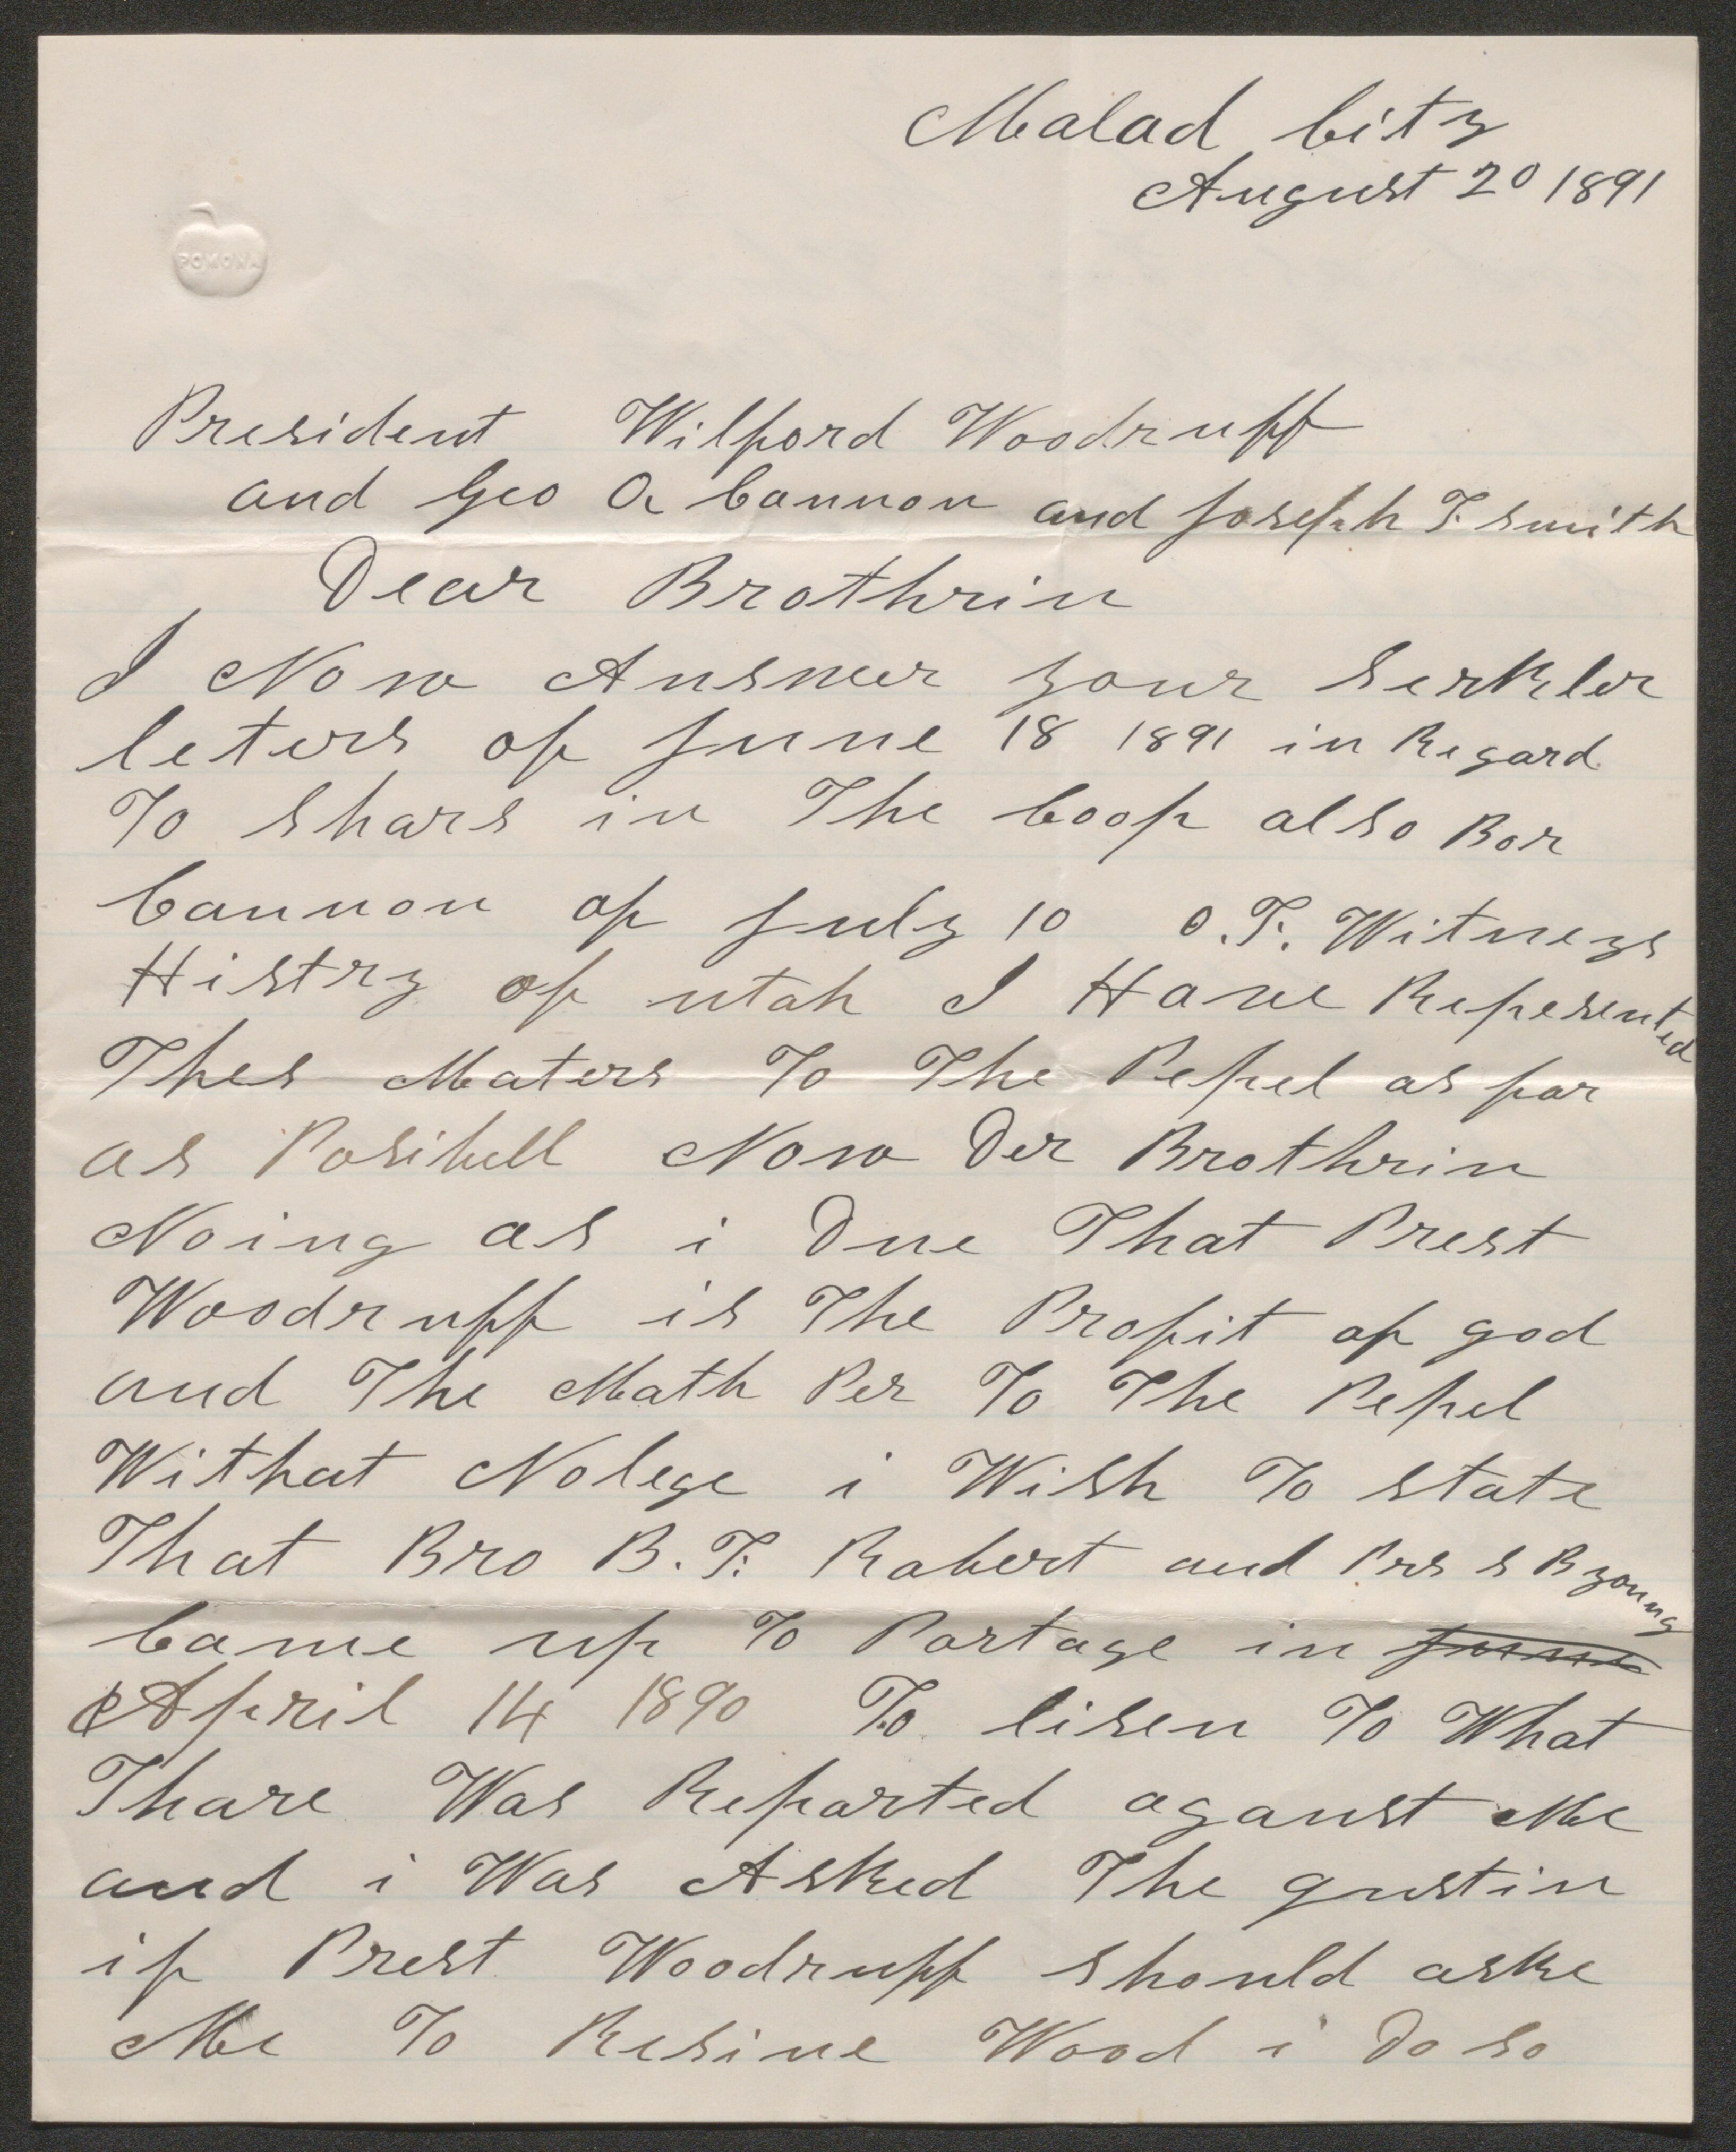 Malad City
August 20 1891
POMONA
President Wilford Woodruff
and Geo Q Cannon and Joseph F. Smith
Dear Brothrin
I Now Answer your Serkler
leters of June 18 1891 in Regard
To Shars in The Coop also Bor
Cannon of July 10 O.F. Witneys
Histry of utah I Have Repesented
Thes Maters To The Pepel as far
as Posibell Now Der Brothrin
Noing as i Due That Prest
Woodruff is The Profit of god
and The Math Pes To The Pepel
Withat Nolege i Wish To state
That Bro B. F. Robert and Prs S B young
Came up To Portage in June
April 14 1890 To lisen To What
Thare Was Reported aganst Me
and i Was Asked The qustin
if Prest Woodruff should aske
Me To Resine Wood i Do so